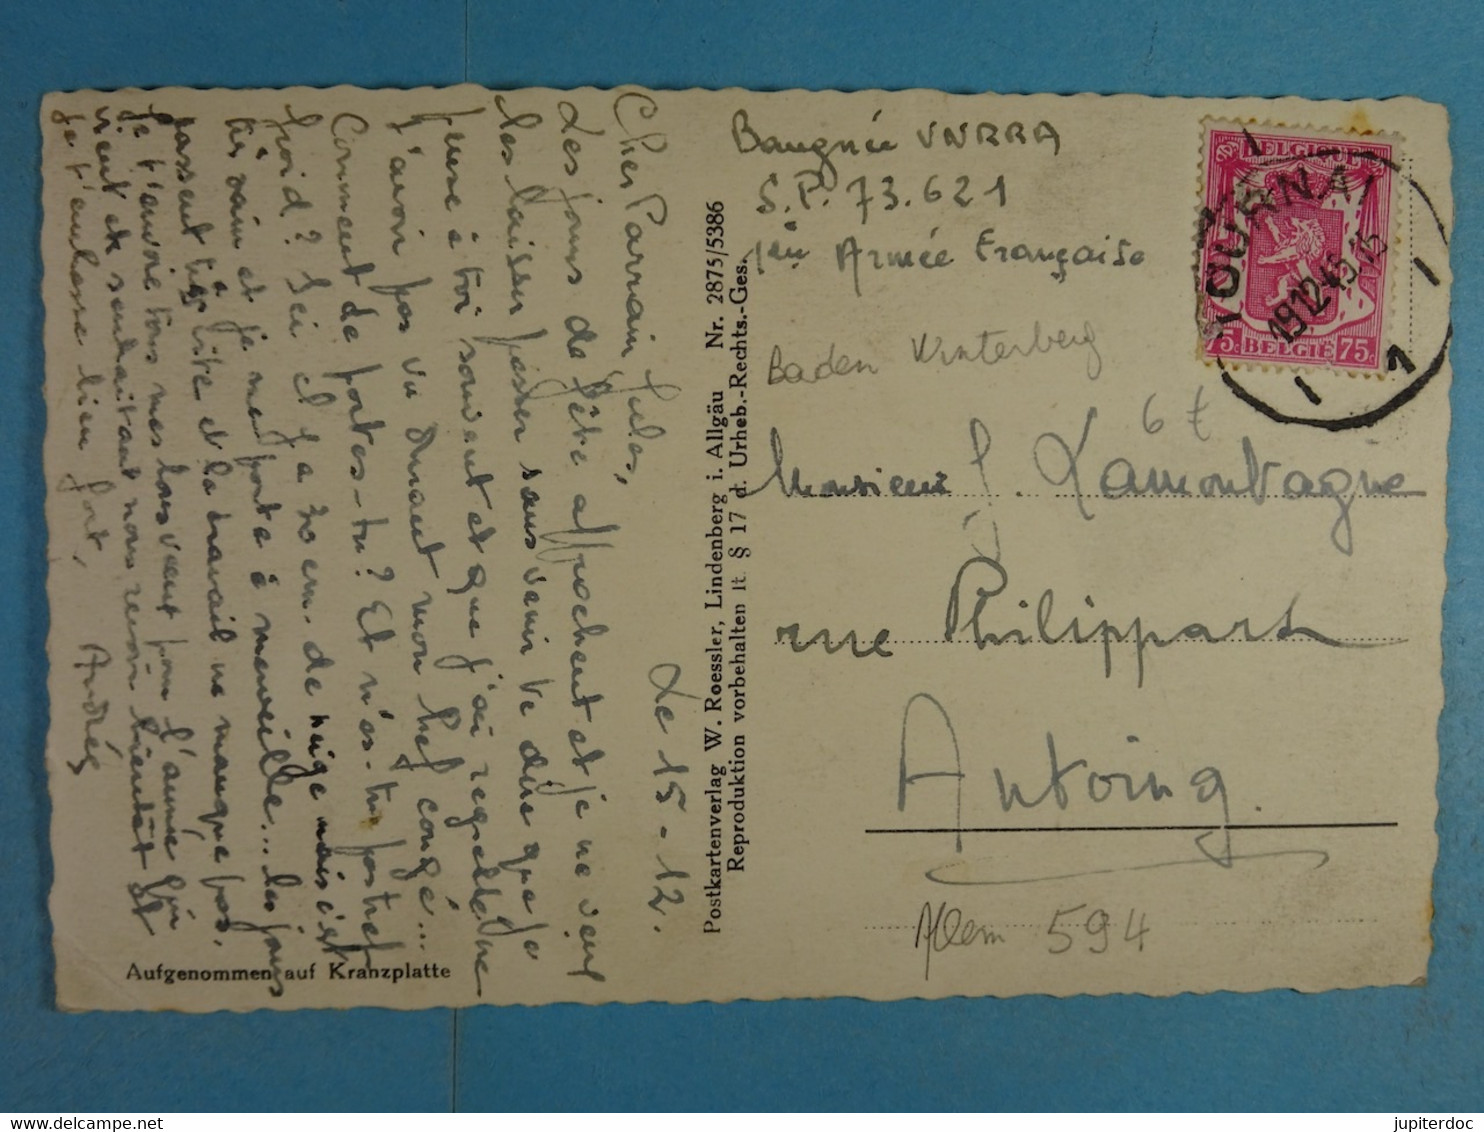 Le 15-12.
Cher Parrain Jules,
Les jours de fête approchent et je ne veux
les laisser passer sans venir te dire que je
pense à toi souvent et que j'ai regretté de ne
t'avoir pas vu durant mon bref congé...
Comment te portes-tu? Et n'es-tu pas trop
froid? Ici il y a 30 cm. de neige mais c'est
très sain et je me porte à merveille... les jours
passent très vite et le travail ne manque pas.
Je t'envoie tous mes bons vœux pour l'année qui
vient et souhaitant nous revoir bientôt et
je t'embrasse bien fort,
Andrée
Aufgenommen auf Kranzplatte
Postkartenverlag W. Roessler, Lindenberg i. Allgäu Nr. 2875/5386
Reproduktion vorbehalten lt. § 17 d. Urheb.-Rechts-Ges.
Baugnée UNRRA
S.P. 73.621
1ère Armée Française
Baden Winterberg
6 €
Monsieur J. Lamontagne
rue Philippart
Antoing.
594
BELGIQUE
75c BELGIË 75c
TOURNAI
1 1
19 12 45 15
jupiterdoc